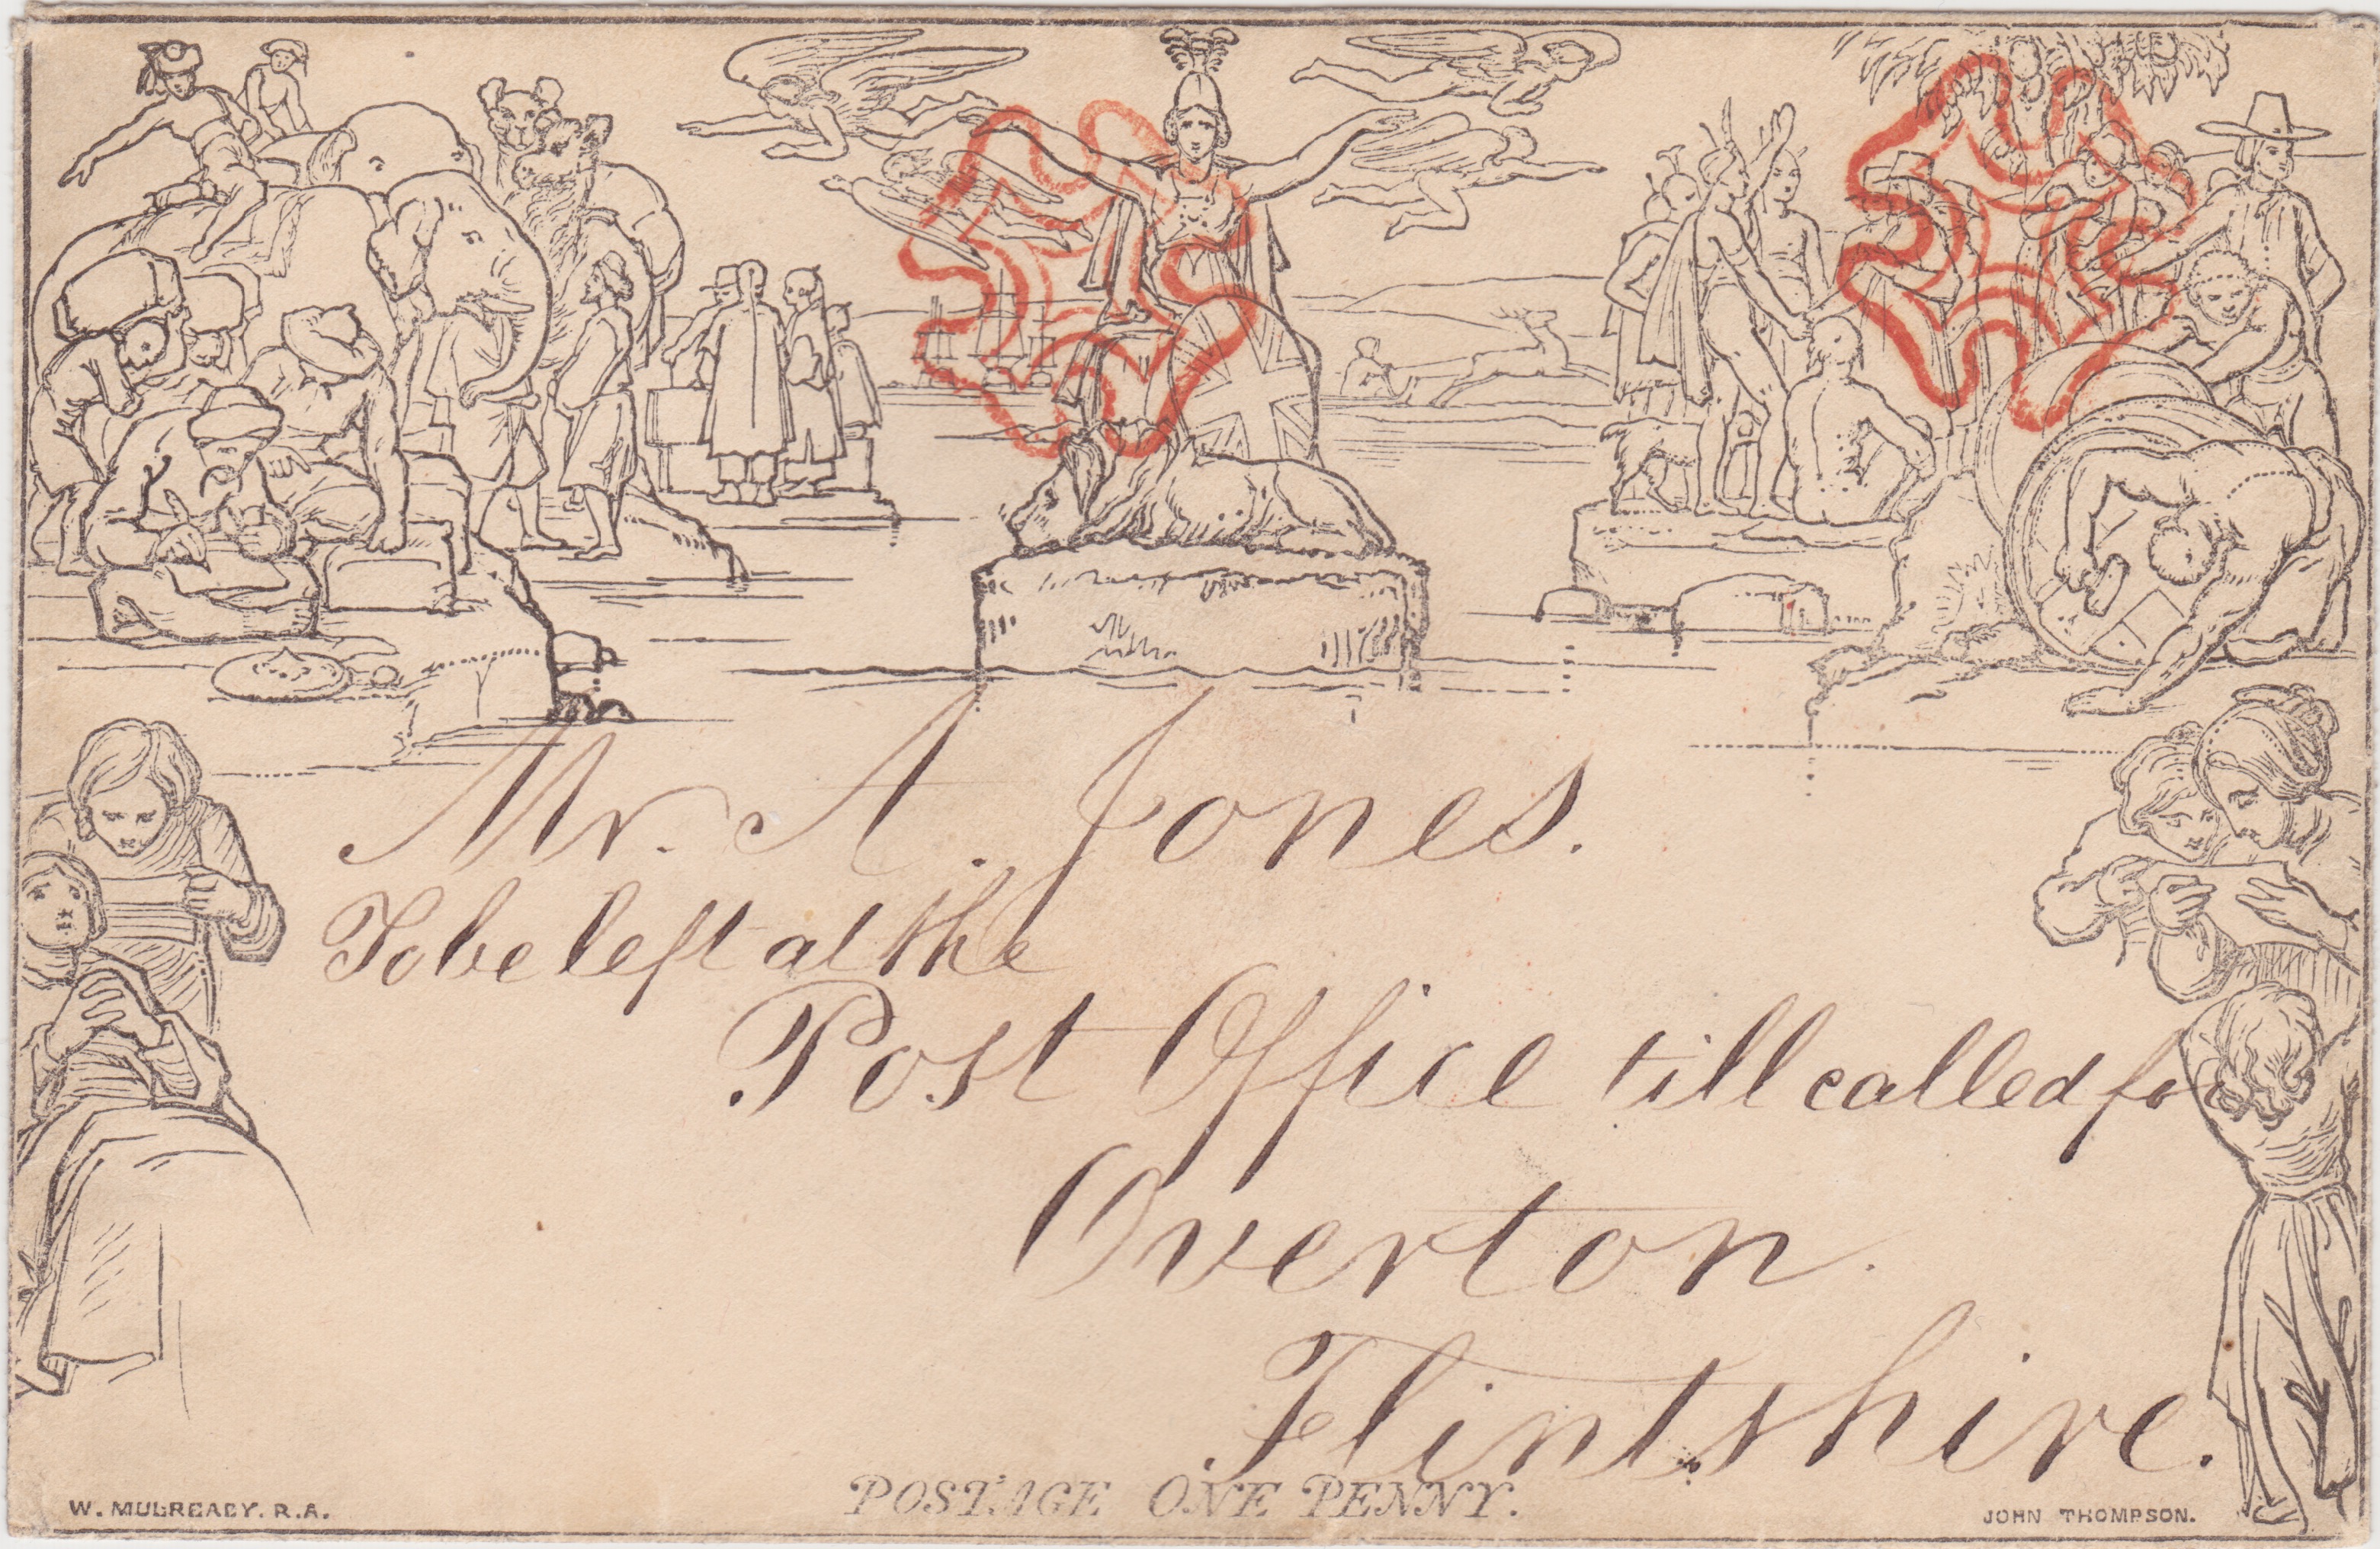 Mr. A. Jones.
To be left at the
Post Office till called for
Overton.
Flintshire.
POSTAGE ONE PENNY.
W. MULREADY. R.A.
JOHN THOMPSON.